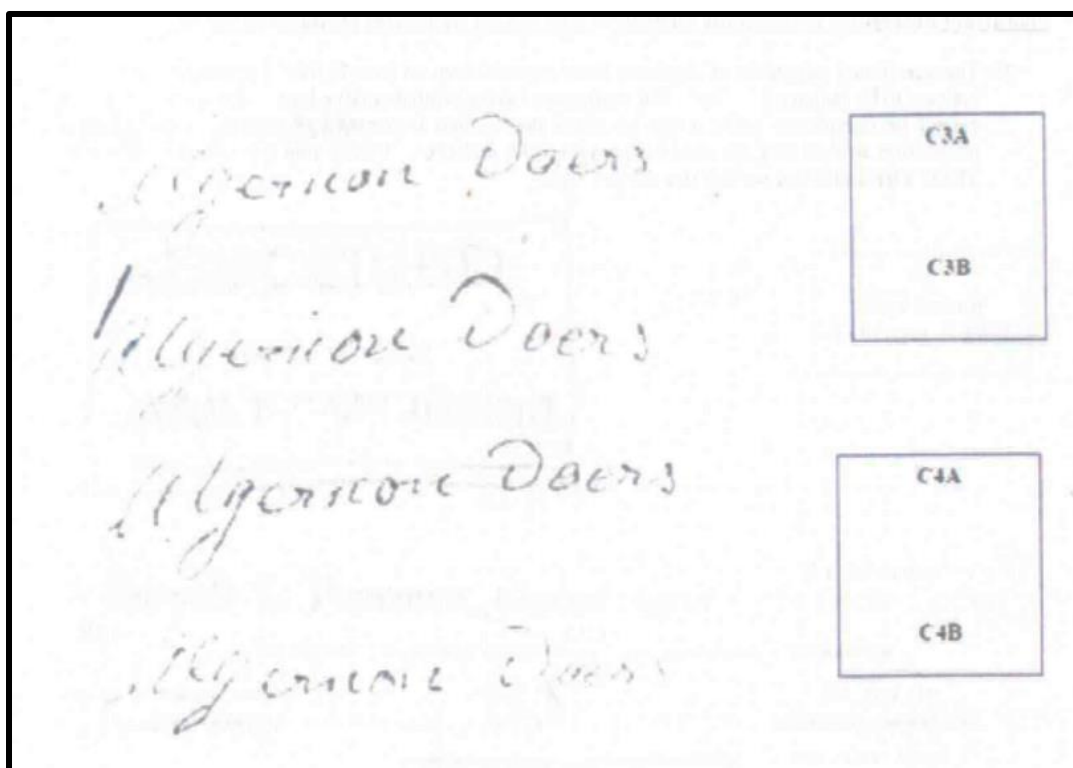 Algernon Doers
C3A
C3B
Algernon Doers
Algernon Doers
C4A
C4B
Algernon Doers